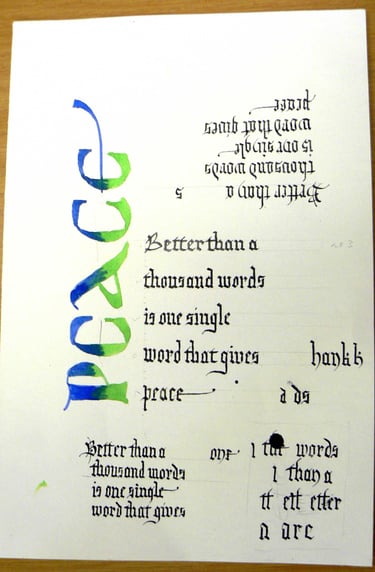 peace
Better than a
thousand words
is one single
word that gives
peace
s
Better than a
thousand words
is one single
word that gives
peace
hankk
a ds
Better than a
thousand words
is one single
word that gives
one
words
1 than a
tt ett etter
a arc